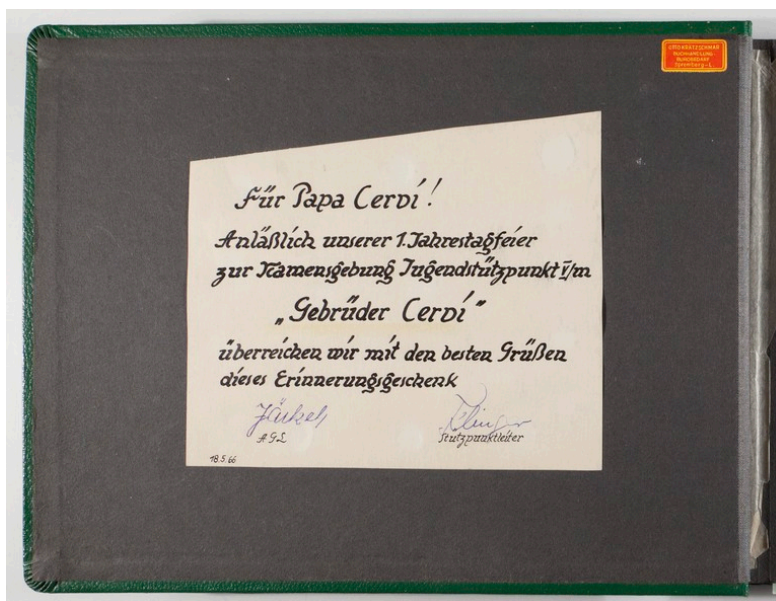 BUCHHANDLUNG
BÜROBEDARF
Spremberg-L.
Für Papa Cervi!
Anläßlich unserer 1. Jahrestagfeier
zur Namensgebung Jugendstützpunkt V/m
„Gebrüder Cervi"
überreichen wir mit den besten Grüßen
dieses Erinnerungsgeschenk
Jäckel
AGL
Stützpunktleiter
18.5.66